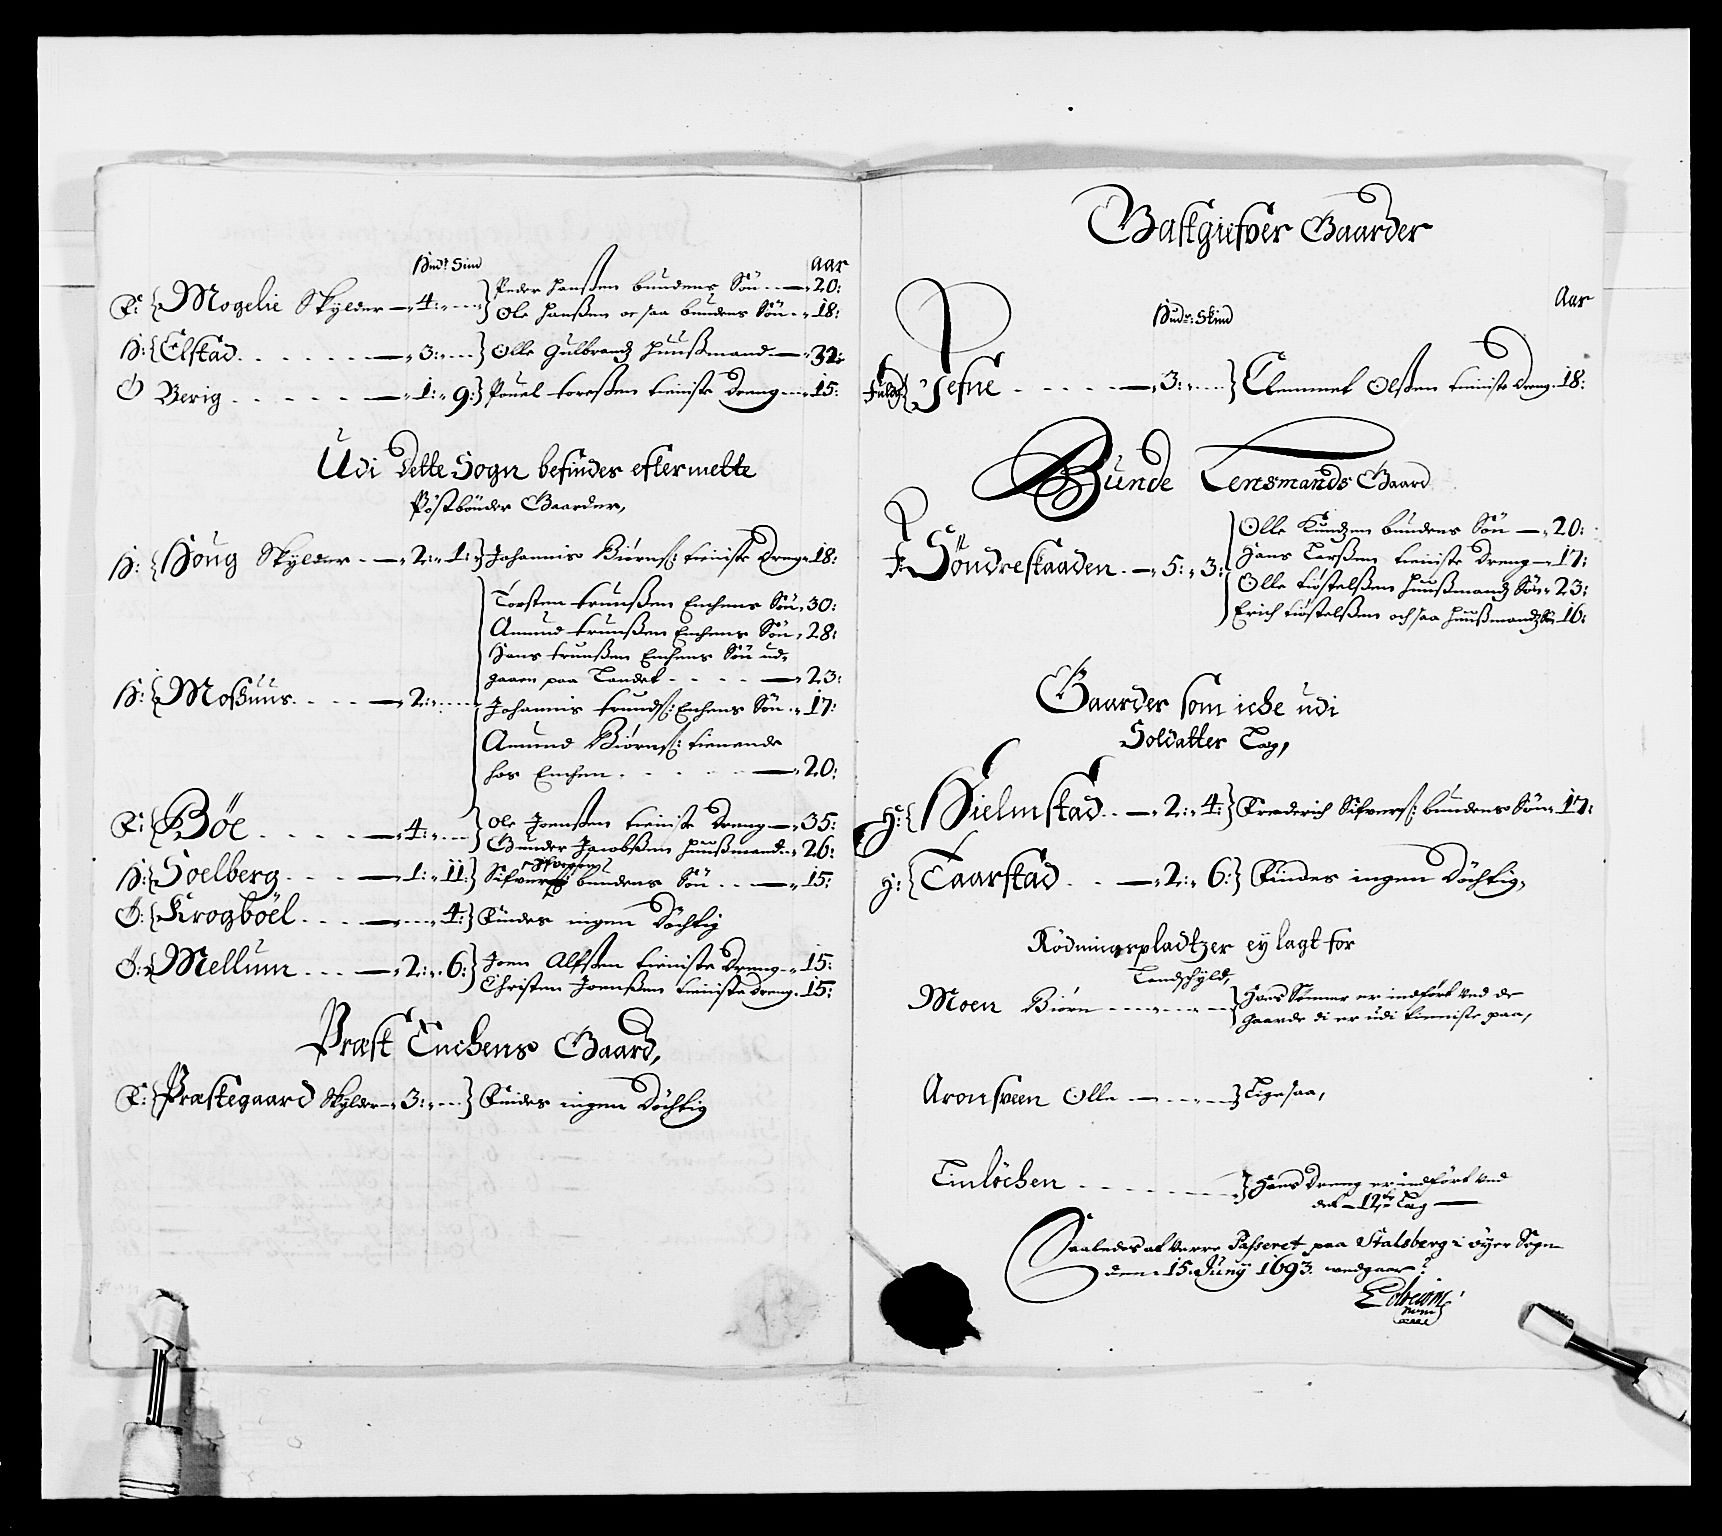 Hud: Sind aar
F: { Mogelie Skylder — 4: } Peder Hanßen bundens Sön — 20:
Ole Hanßen oc saa bundens Sön 18:
H: { Elstad — 3: } Olle Gulbrandz Huußmand — 32:
Ö Berig — 1: 9: } Pouel toreßen tieniste Dreng 15:
Udi dette Sogn befindes eftermelte
Pöstbönder Gaarder,
H: { Houg Skylder — 2: 1: } Johannis Biörns: tieniste Dreng 18:
Torsten trunßen Enchens Sön 30:
Amund trunßen Enchens Sön 28:
Hans trunßen Enchens Sön ud,
gaaen paa Landet — 23:
H: { Moßuus — 2: Johannis trunds: Enchens Sön 17:
Amund Biörns: tienende
hos Enchen — 20:
F: { Böe — 4: } Ole Joenßen tieniste Dreng — 35:
Gunder Jacobßen Huußmand 26:
H: { Soelberg — 1: 11: } Sifvers bundens Sön — 15:
Ö: { Krogböel — 4: } Findes ingen Döchtig
Ö: { Mellum — 2: 6: } Joen Alfßen tieniste Dreng 15:
Christen Joenßen tieniste Dreng 15:
Præst Enchens Gaard,
F: { Præstegaard Skylder 3: } Findes ingen Döchtig
Gastgiefver Gaarder
Hud: Skind Aar
Jefne — 3: } Clemmet Olßen tieniste Dreng 18:
Bunde Lensmands Gaard
F: Söndrestaaden — 5: 3: Olle Knudzen bundens Sön — 20:
Hans Larßen tieniste Dreng — 17:
Olle tiöstelßen Huußmandz Sön 23:
Erich tiöstelßen och saa Huußmandz Sön 16:
Gaarder som iche udi
Soldatter Lag,
H: { Hielmstad — 2: 4: } Friederich Sifvers: bundens Sön 17:
H: { Taarstad — 2: 6: } Findes ingen Döchtig,
Rödningspladtzer ey lagt for
Landschyld,
Moen Biörn — } Hans Sönner er indfört ved de
Gaarde di er udi tieniste paa,
Aronsveen Olle — } Ligesaa,
Linlöchen — } Hans Dreng er indfört ved
det 12te Lag —
Saaledes at verre Passeret paa Stalsberg i öyer Sogn
den 15. Juny 1693. vedgaar